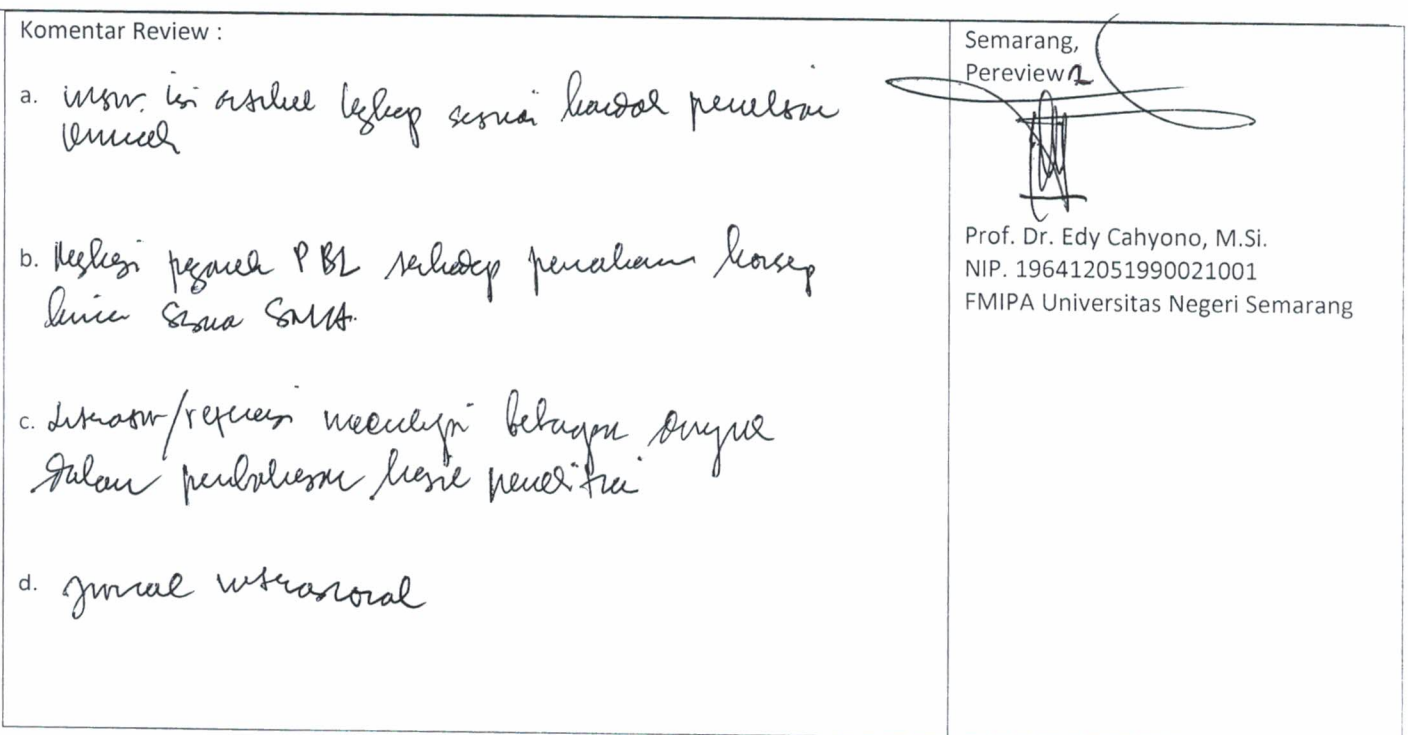 Komentar Review :
a. unsur isi artikel lengkap sesuai kaidah penelitian
ilmiah
b. Mengkaji pengaruh PBL terhadap pemahaman konsep
kimia siswa SMA.
c. Literatur/referensi mencukupi sebagai
dalam pembahasan hasil penelitian
d. Jurnal internasional
Semarang,
Pereview 2
Prof. Dr. Edy Cahyono, M.Si.
NIP. 196412051990021001
FMIPA Universitas Negeri Semarang